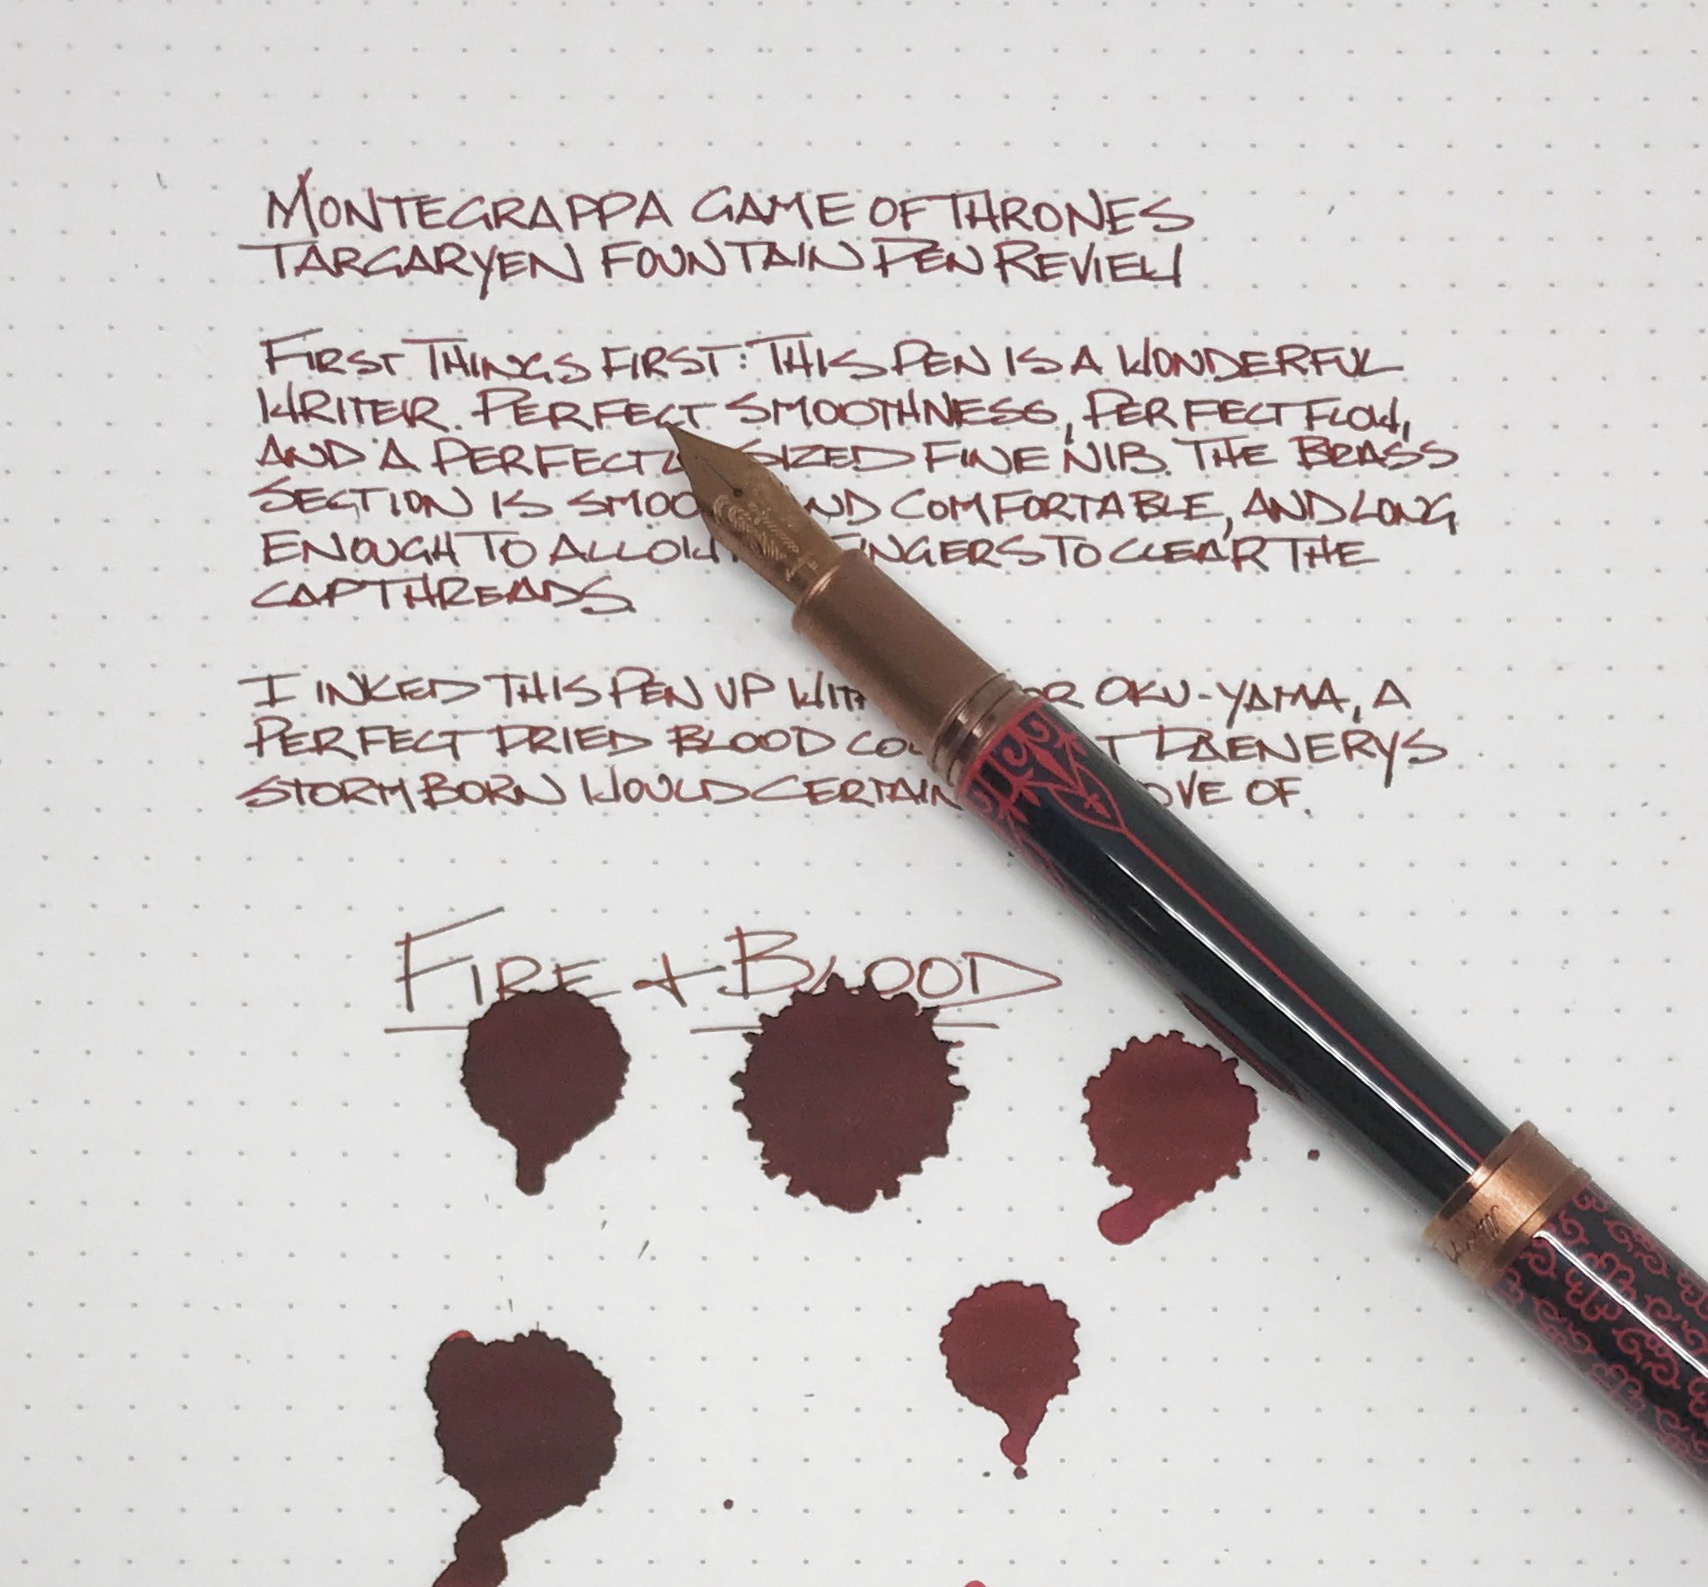 MONTEGRAPPA GAME OF THRONES
TARGARYEN FOUNTAIN PEN REVIEW
FIRST THINGS FIRST: THIS PEN IS A WONDERFUL
WRITER. PERFECT SMOOTHNESS, PERFECT FLOW,
AND A PERFECTL SIZED FINE NIB. THE BRASS
SECTION IS SMOO ND COMFORTABLE, AND LONG
ENOUGH TO ALLOW INGERS TO CLEAR THE
CAP THREADS.
I INKED THIS PEN UP WITH OR OKU-YAMA, A
PERFECT DRIED BLOOD COL T DAENERYS
STORMBORN WOULD CERTAIN OVE OF.
FIRE + BLOOD